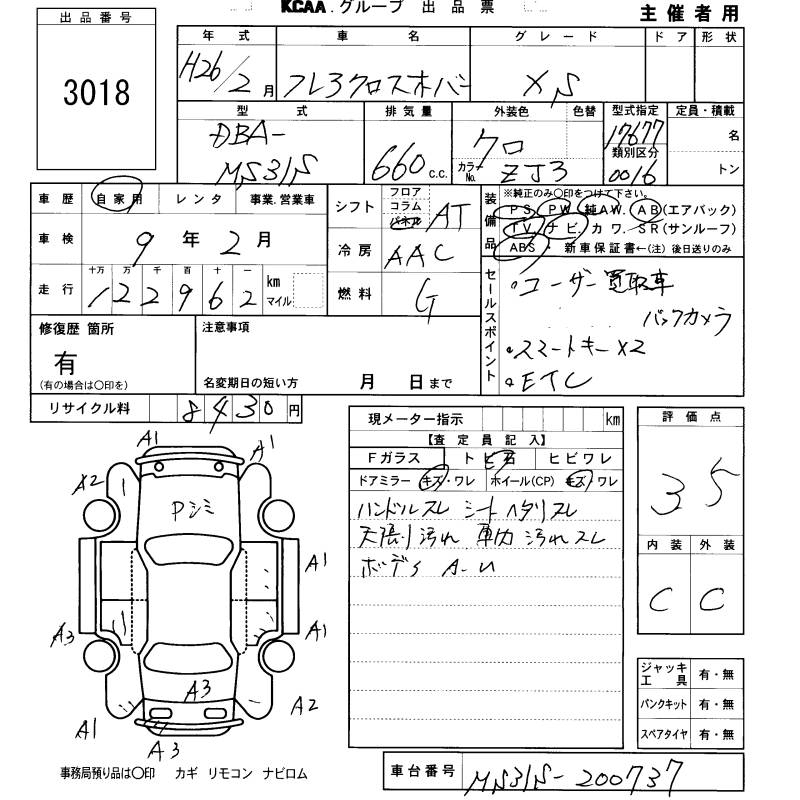 KCAA.グループ 出品票
主催者用
出品番号
3018
年式 車名 グレード ドア 形状
H26/2月 フレアクロスオーバー XS
型式 排気量 外装色 色替 型式指定 定員・積載
DBA-
MS31S
660 c.c.
クロ
カラーNo. ZJ3
17677
類別区分
0016
名
トン
車歴 自家用 レンタ 事業.営業車
車検 9年2月
走行 十万 万 千 百 十 一 km マイル
122962
シフト フロア コラム パネル AT
冷房 AAC
燃料 G
装備品
※純正のみ○印をつけて下さい。
PS. PW. 純AW. AB(エアバック)
TV. ナビ. カワ. SR(サンルーフ)
ABS・新車保証書←(注)後日送りのみ
セールスポイント
・ユーザー買取車
バックカメラ
・スマートキーX2
・ETC
修復歴 箇所
有
(有の場合は○印を)
注意事項
名変期日の短い方 月 日まで
リサイクル料 8430円
現メーター指示 km
【査定員記入】
Fガラス トビ石 ヒビワレ
ドアミラー キズ・ワレ ホイール(CP) キズ/ワレ
ハンドルスレ シートヘタリスレ
天張り汚れ 車内汚れスレ
ボディ A-U
評価点
3 5
内装 外装
C C
ジャッキ工具 有・無
パンクキット 有・無
スペアタイヤ 有・無
A1 A1
A2
Pシミ
A1
A3 A1
A3
A1 A2
A3
事務局預り品は○印 カギ リモコン ナビロム
車台番号 MS31S-200737